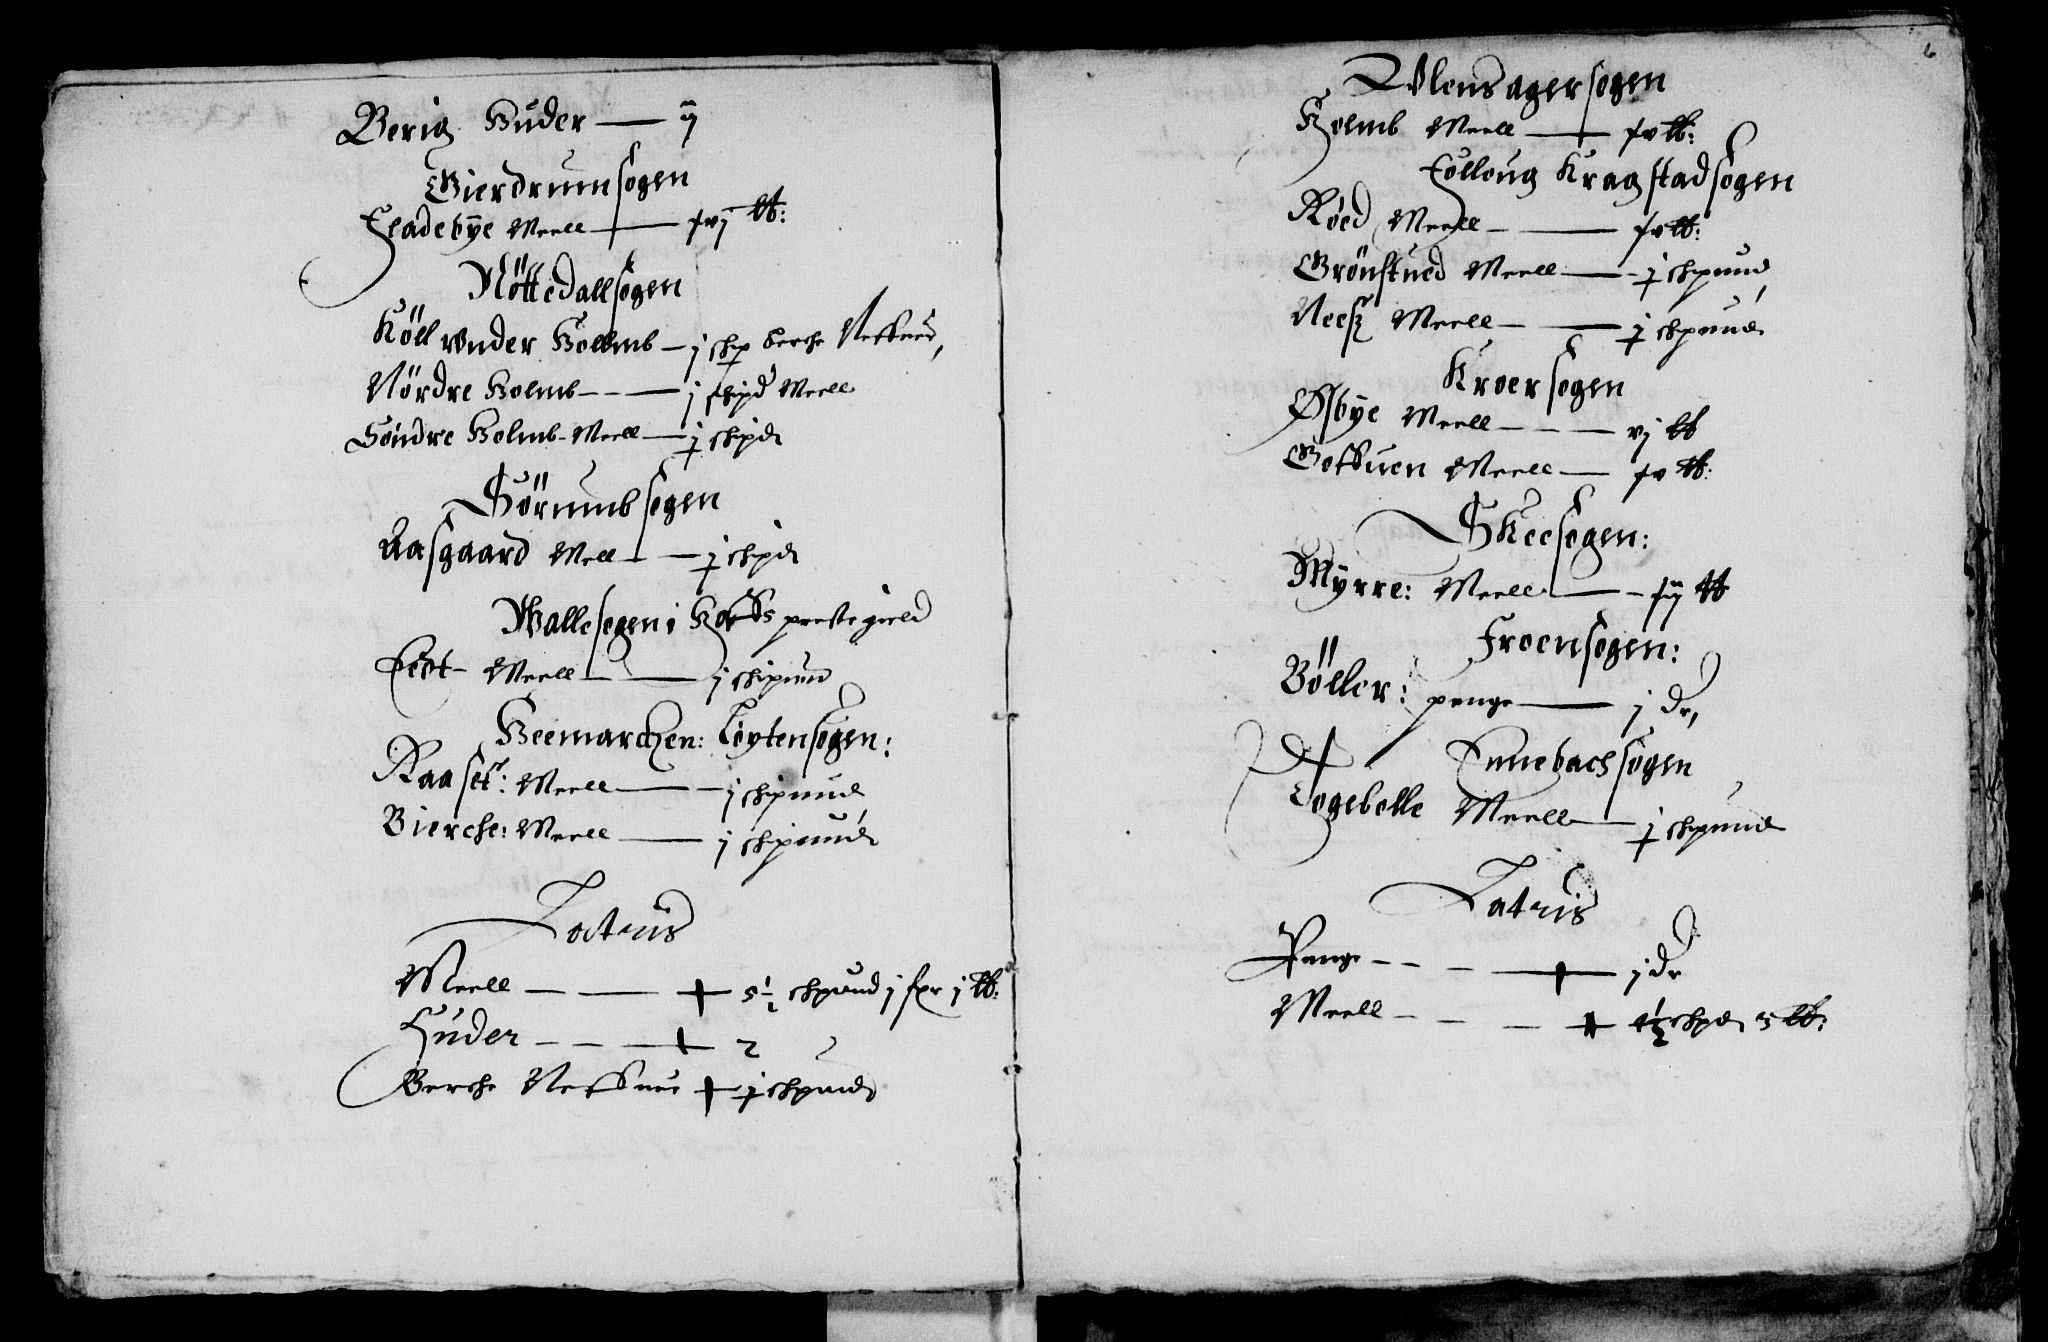 Berig Huder — ij
Gierdrum sogen
Fladebÿe Meell — fvj ℔:
Nöttedall sogen
Köll vnder Hollmb — j skip berche
Nördre Holmb — j skipd Meell
Söndre Holmb Meell — j skipd
Sörumb sogen
Aasgaard Mell — j skipd
Walle sogen i prestegield
Meell — j skipund
Heemarchen: Löyten sogen:
Raaset: Meell — j skipund
Bierche: Meell — j skipund
Latus
Meell — 5½ skpund j fxr j ℔:
Huder — 2
Berche — j skpund
6
Vlensager sogen
Holmb Meell — fv ℔:
Folloug Kragstad sogen
Röed Meell — fv ℔:
Grönstued Meell — j skpund
Neesz Meell — j skpund
Kroer sogen
Øsbye Meell — vj ℔
Meell — fv ℔:
Skee sogen:
Myrre: Meell — fij ℔
Froen sogen:
Böller: penge — j dr,
Ennebach sogen
Togebolle Meell — j skpund
Latus
Penge — j dr
Meell — 4½ skpd 3 ℔: